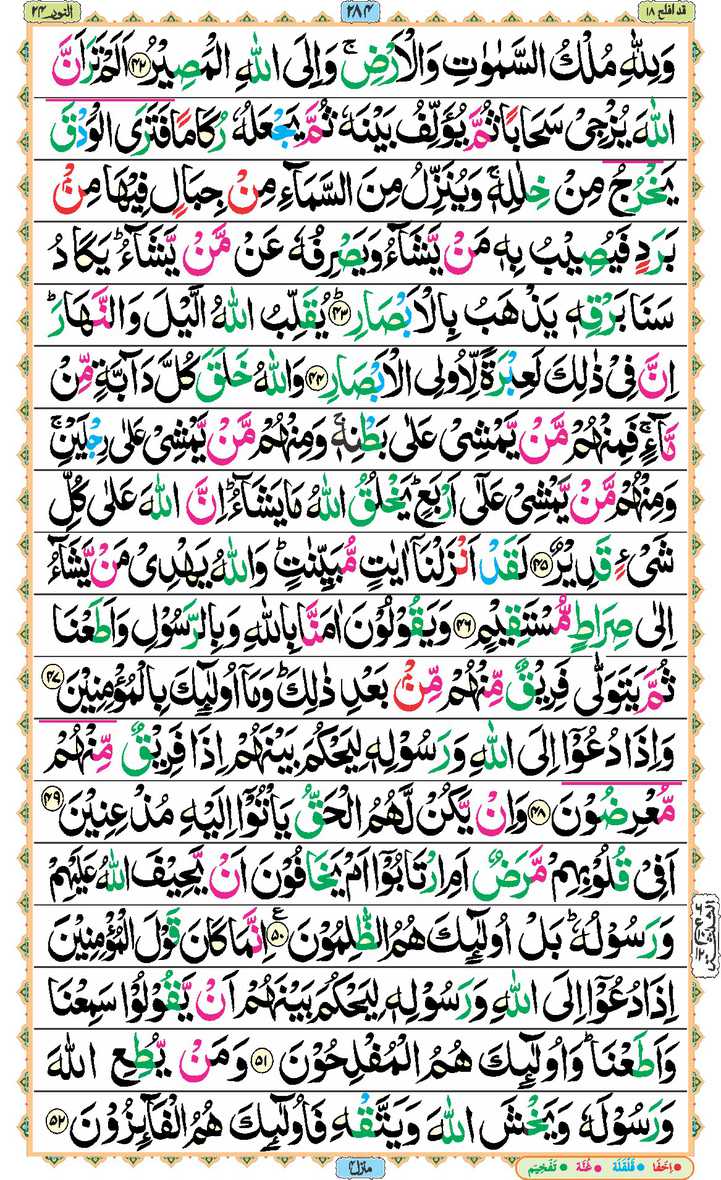 قد افلح ۱۸
۲۸۴
النور ۲۴
وَلِلّٰهِ مُلْكُ السَّمٰوٰتِ وَالْاَرْضِ ۚ وَاِلَى اللّٰهِ الْمَصِيْرُ ﴿۴۲﴾ اَلَمْ تَرَ اَنَّ
اللّٰهَ يُزْجِىْ سَحَابًا ثُمَّ يُؤَلِّفُ بَيْنَهٗ ثُمَّ يَجْعَلُهٗ رُكَامًا فَتَرَى الْوَدْقَ
يَخْرُجُ مِنْ خِلٰلِهٖ ۚ وَيُنَزِّلُ مِنَ السَّمَآءِ مِنْ جِبَالٍ فِيْهَا مِنْۢ
بَرَدٍ فَيُصِيْبُ بِهٖ مَنْ يَّشَآءُ وَيَصْرِفُهٗ عَنْ مَّنْ يَّشَآءُ ؕ يَكَادُ
سَنَا بَرْقِهٖ يَذْهَبُ بِالْاَبْصَارِ ؕ ﴿۴۳﴾ يُقَلِّبُ اللّٰهُ الَّيْلَ وَالنَّهَارَ ؕ
اِنَّ فِىْ ذٰلِكَ لَعِبْرَةً لِّاُولِى الْاَبْصَارِ ﴿۴۴﴾ وَاللّٰهُ خَلَقَ كُلَّ دَآبَّةٍ مِّنْ
مَّآءٍ ۚ فَمِنْهُمْ مَّنْ يَّمْشِىْ عَلٰى بَطْنِهٖ ۚ وَمِنْهُمْ مَّنْ يَّمْشِىْ عَلٰى رِجْلَيْنِ ۚ
وَمِنْهُمْ مَّنْ يَّمْشِىْ عَلٰٓى اَرْبَعٍ ؕ يَخْلُقُ اللّٰهُ مَا يَشَآءُ ؕ اِنَّ اللّٰهَ عَلٰى كُلِّ
شَىْءٍ قَدِيْرٌ ﴿۴۵﴾ لَقَدْ اَنْزَلْنَاۤ اٰيٰتٍ مُّبَيِّنٰتٍ ؕ وَاللّٰهُ يَهْدِىْ مَنْ يَّشَآءُ
اِلٰى صِرَاطٍ مُّسْتَقِيْمٍ ﴿۴۶﴾ وَيَقُوْلُوْنَ اٰمَنَّا بِاللّٰهِ وَبِالرَّسُوْلِ وَاَطَعْنَا
ثُمَّ يَتَوَلّٰى فَرِيْقٌ مِّنْهُمْ مِّنْۢ بَعْدِ ذٰلِكَ ؕ وَمَاۤ اُولٰٓئِكَ بِالْمُؤْمِنِيْنَ ﴿۴۷﴾
وَاِذَا دُعُوْۤا اِلَى اللّٰهِ وَرَسُوْلِهٖ لِيَحْكُمَ بَيْنَهُمْ اِذَا فَرِيْقٌ مِّنْهُمْ
مُّعْرِضُوْنَ ﴿۴۸﴾ وَاِنْ يَّكُنْ لَّهُمُ الْحَقُّ يَاْتُوْۤا اِلَيْهِ مُذْعِنِيْنَ ﴿۴۹﴾
اَفِىْ قُلُوْبِهِمْ مَّرَضٌ اَمِ ارْتَابُوْۤا اَمْ يَخَافُوْنَ اَنْ يَّحِيْفَ اللّٰهُ عَلَيْهِمْ
وَرَسُوْلُهٗ ؕ بَلْ اُولٰٓئِكَ هُمُ الظّٰلِمُوْنَ ﴿۵۰﴾ ع اِنَّمَا كَانَ قَوْلَ الْمُؤْمِنِيْنَ
اِذَا دُعُوْۤا اِلَى اللّٰهِ وَرَسُوْلِهٖ لِيَحْكُمَ بَيْنَهُمْ اَنْ يَّقُوْلُوْا سَمِعْنَا
وَاَطَعْنَا ؕ وَاُولٰٓئِكَ هُمُ الْمُفْلِحُوْنَ ﴿۵۱﴾ وَمَنْ يُّطِعِ اللّٰهَ
وَرَسُوْلَهٗ وَيَخْشَ اللّٰهَ وَيَتَّقْهِ فَاُولٰٓئِكَ هُمُ الْفَآئِزُوْنَ ﴿۵۲﴾
منزل ۴
اِخفَا قَلقَلَة غُنَّة تَفخِيم